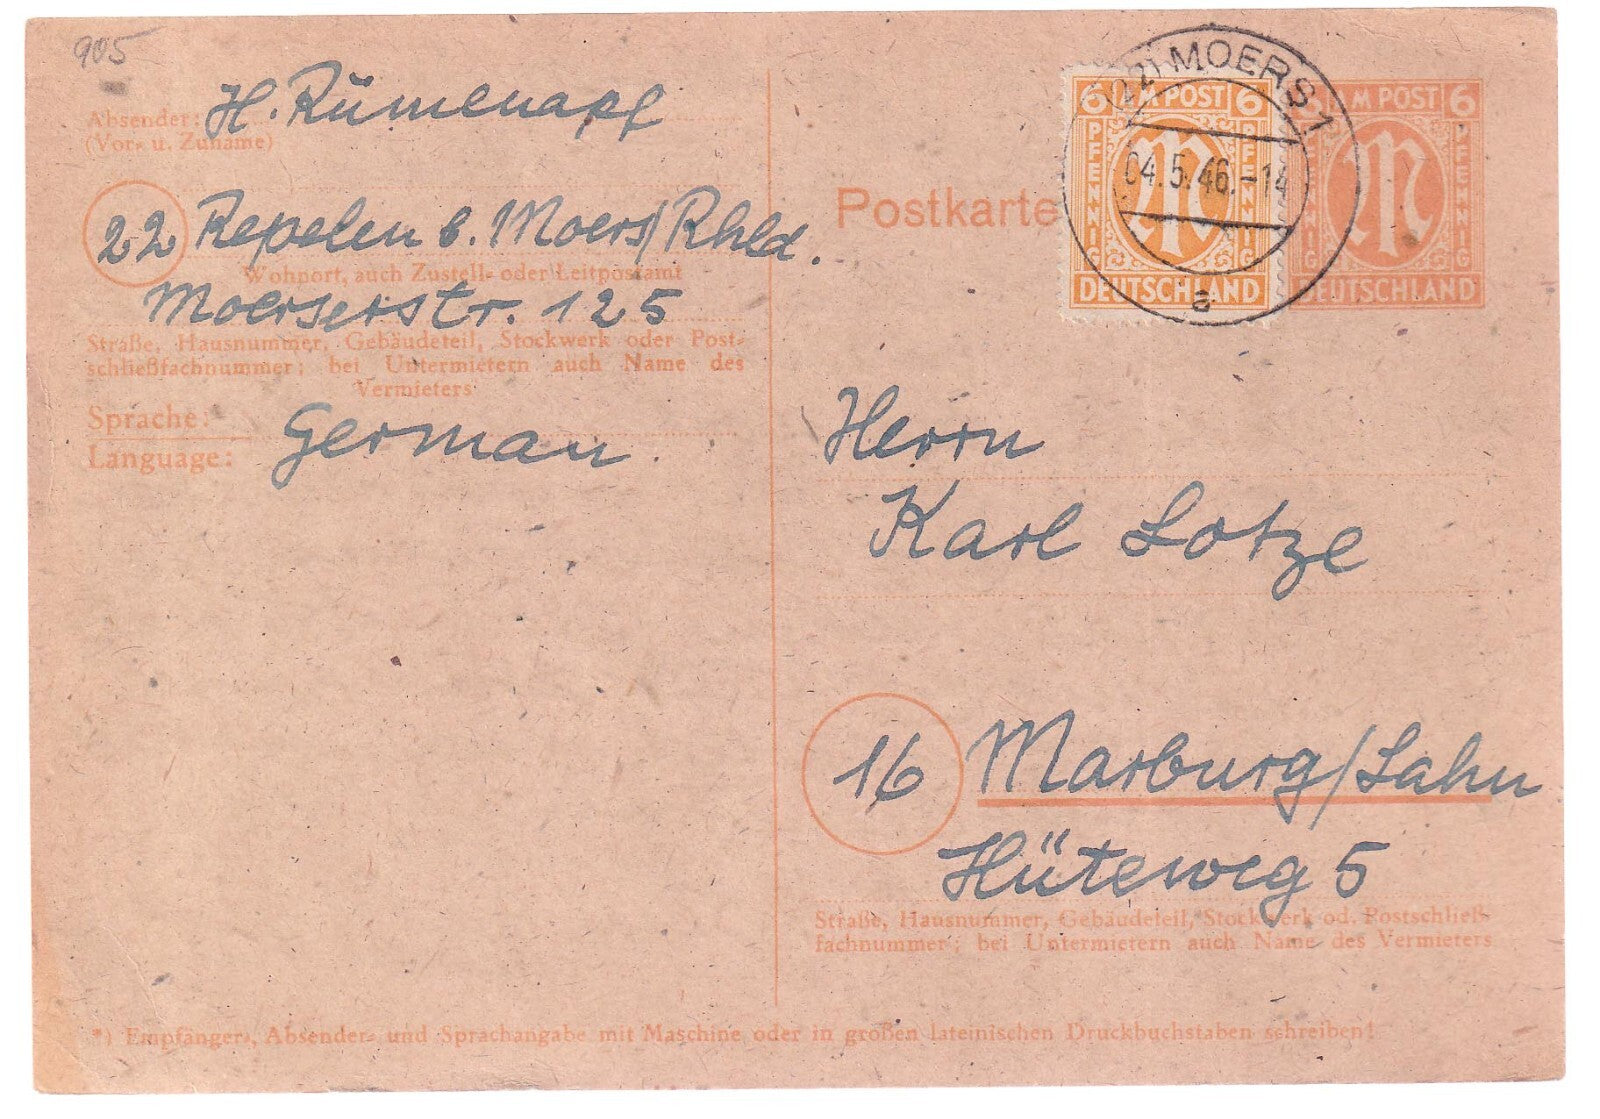 905
Absender: H. Rümenapf
(Vor- u. Zuname)
22 Repelen b. Moers/Rhld.
Wohnort, auch Zustell- oder Leitpostamt
Moerserstr. 125
Straße, Hausnummer, Gebäudeteil, Stockwerk oder Post-
schließfachnummer; bei Untermietern auch Name des
Vermieters
Sprache:
Language: German.
Postkarte
6 AM POST 6
PFENNIG PFENNIG
M
DEUTSCHLAND
6 AM POST 6
PFENNIG PFENNIG
M
DEUTSCHLAND
(22) MOERS 1
04.5.46.-14
a
Herrn
Karl Lotze
16 Marburg/Lahn
Hüteweg 5
Straße, Hausnummer, Gebäudeteil, Stockwerk od. Postschließ-
fachnummer; bei Untermietern auch Name des Vermieters
*) Empfänger-, Absender- und Sprachangabe mit Maschine oder in großen lateinischen Druckbuchstaben schreiben!